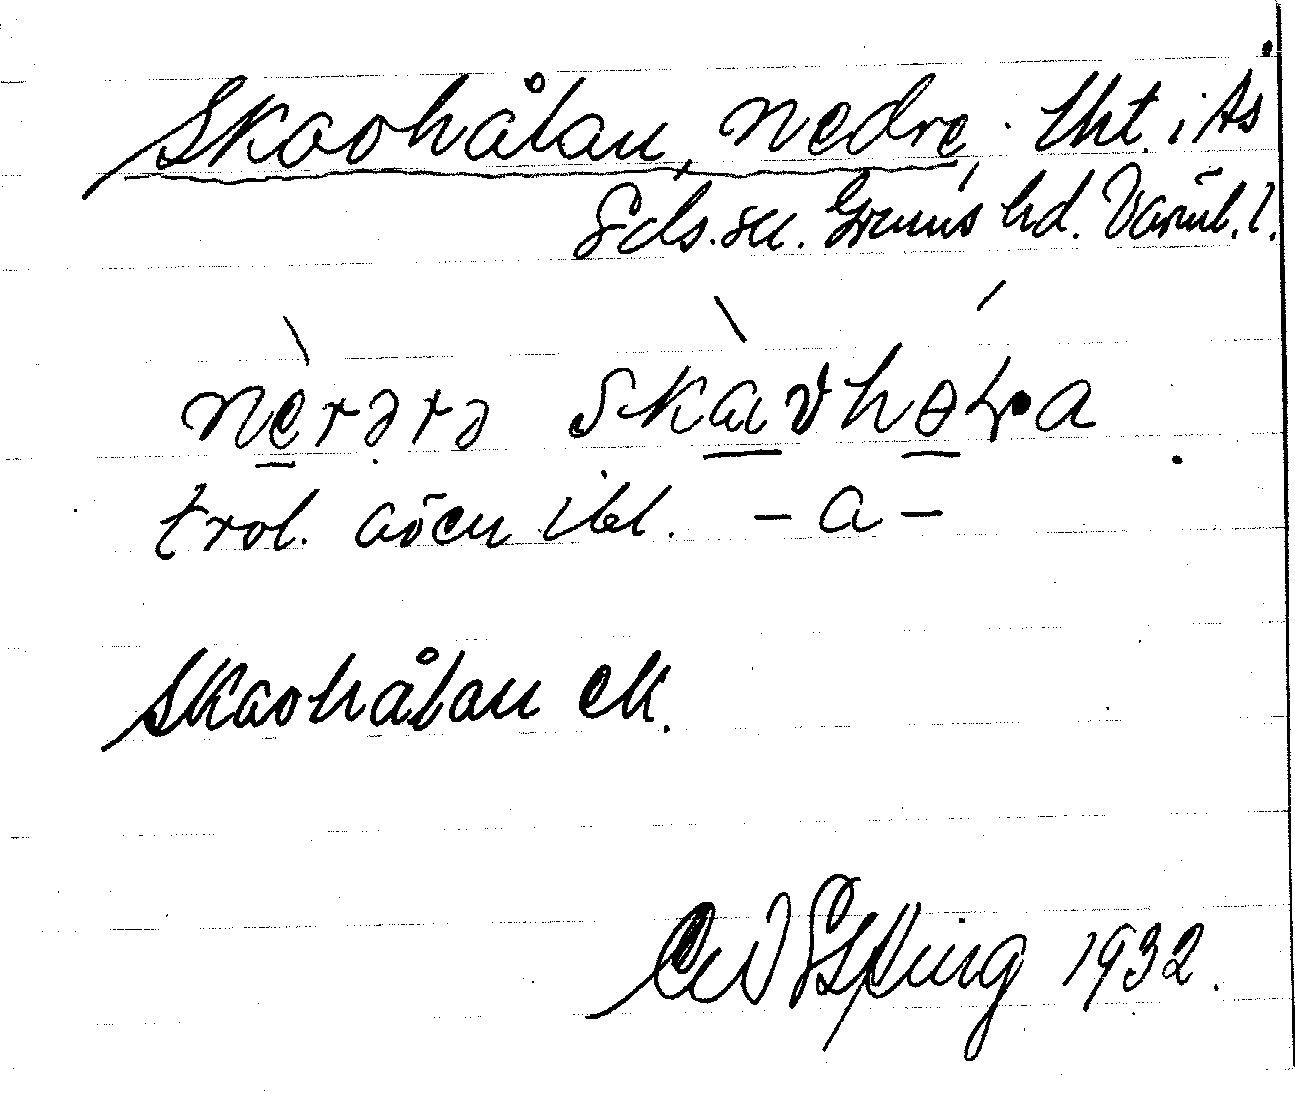 Skaohålan, nedre. lht. i Ås
Eds. sn. Grums hd. Värml. l.
nèrərə skàvhəɫa
trol. även ibl. – a –
Skaohålan ek.
1932.